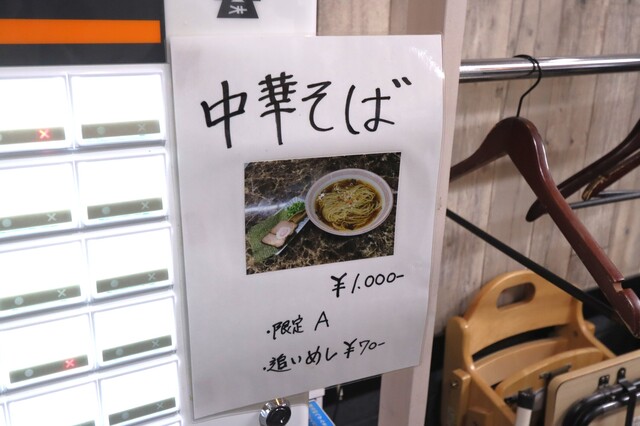 中華そば
¥1.000-
・限定 A
・追いめし ¥70-